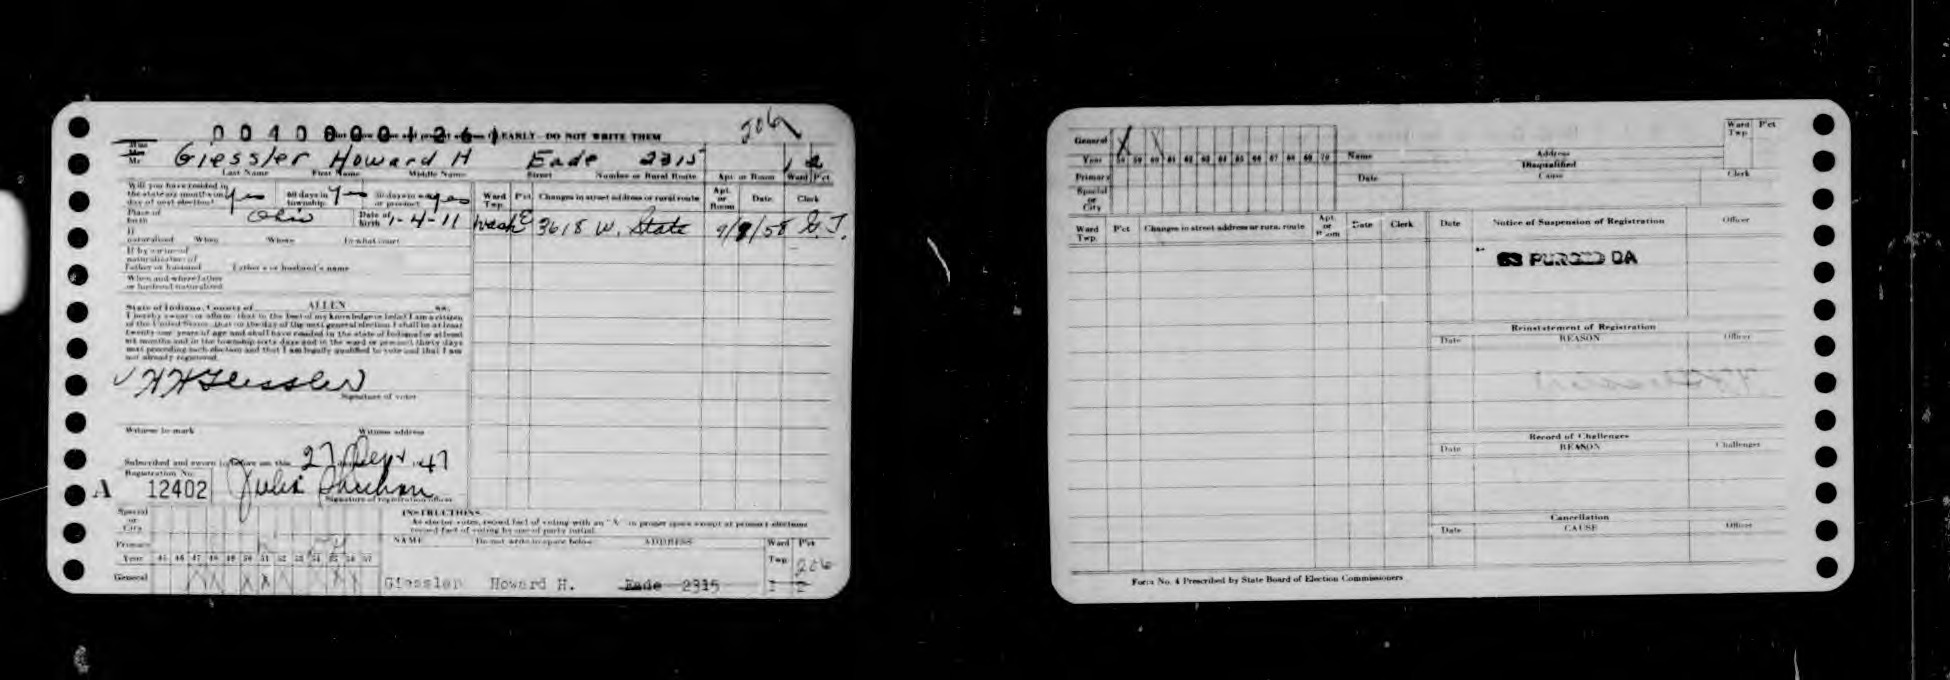 0040000126 EARLY - DO NOT WRITE THEM
206
Miss
Mrs
Mr Giessler Howard H Eade 2315 1 2
Last Name First Name Middle Name Street Number or Rural Route Apt or Room Ward P'ct
Will you have resided in
the state six months on
day of next election? Yes 60 days in
township Yes 30 days in ward
or precinct yes
Place of
birth Ohio Date of
birth 1-4-11
If
naturalized When Where In what court
If by virtue of
naturalization of
Father or husband Father's or husband's name
When and where father
or husband naturalized
State of Indiana, County of ALLEN ss.
I hereby swear or affirm that to the best of my knowledge or belief I am a citizen
of the United States, that on the day of the next general election I shall be at least
twenty one years of age and shall have resided in the state of Indiana for at least
six months and in the township sixty days and in the ward or precinct thirty days
next preceding such election and that I am legally qualified to vote and that I am
not already registered.
H H Giessler
Signature of voter
Witness to mark Witness address
Subscribed and sworn to before me this 27 Sept 47
Registration No.
A 12402 Julia
Signature of registration officer
Ward
Twp. P'ct. Changes in street address or rural route Apt.
or
Room Date Clerk
Wash 3618 W. State 9/9/58 G.J.
INSTRUCTIONS
As elector votes, record fact of voting with an "X" in proper space except at primary elections
record fact of voting by use of party initial.
Special
or
City
Primary
Year 45 46 47 48 49 50 51 52 53 54 55 56 57
General
NAME Do not write in space below ADDRESS Ward P'ct
Twp 206
Giessler Howard H. Eade 2315 1 2
General X
Year 58 59 60 61 62 63 64 65 66 67 68 69 70
Primary
Special
or
City
Name Address
Disqualified
Date Cause Clerk
Ward
Twp P'ct
Ward
Twp. P'ct Changes in street address or rural route Apt.
or
Room Date Clerk
Date Notice of Suspension of Registration Officer
63 PURGED DA
Reinstatement of Registration
Date REASON Officer
Record of Challenges
Date REASON Challenger
Cancellation
Date CAUSE Officer
Form No. 4 Prescribed by State Board of Election Commissioners